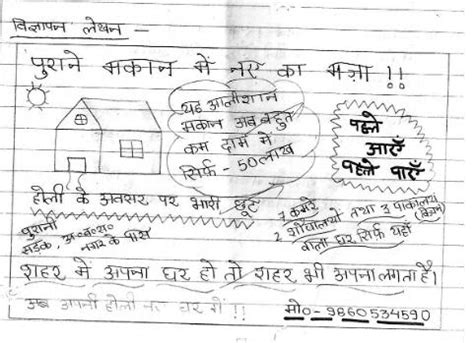 विज्ञापन लेखन —
पुराने मकान में नए का मज़ा !!
यह आलीशान
मकान अब बहुत
कम दाम में
सिर्फ - 50 लाख
पहले
आएँ
पहले पाएँ
होली के अवसर पर भारी छूट
7 कमरे
2 शौचालयों तथा 3 पाकालय
(किचन)
वाला घर सिर्फ यहाँ
पुरानी
सड़क,
नगर के पास
शहर में अपना घर हो तो शहर भी अपना लगता है।
अब अपनी होली नए घर में !!
मो०- 9860534590